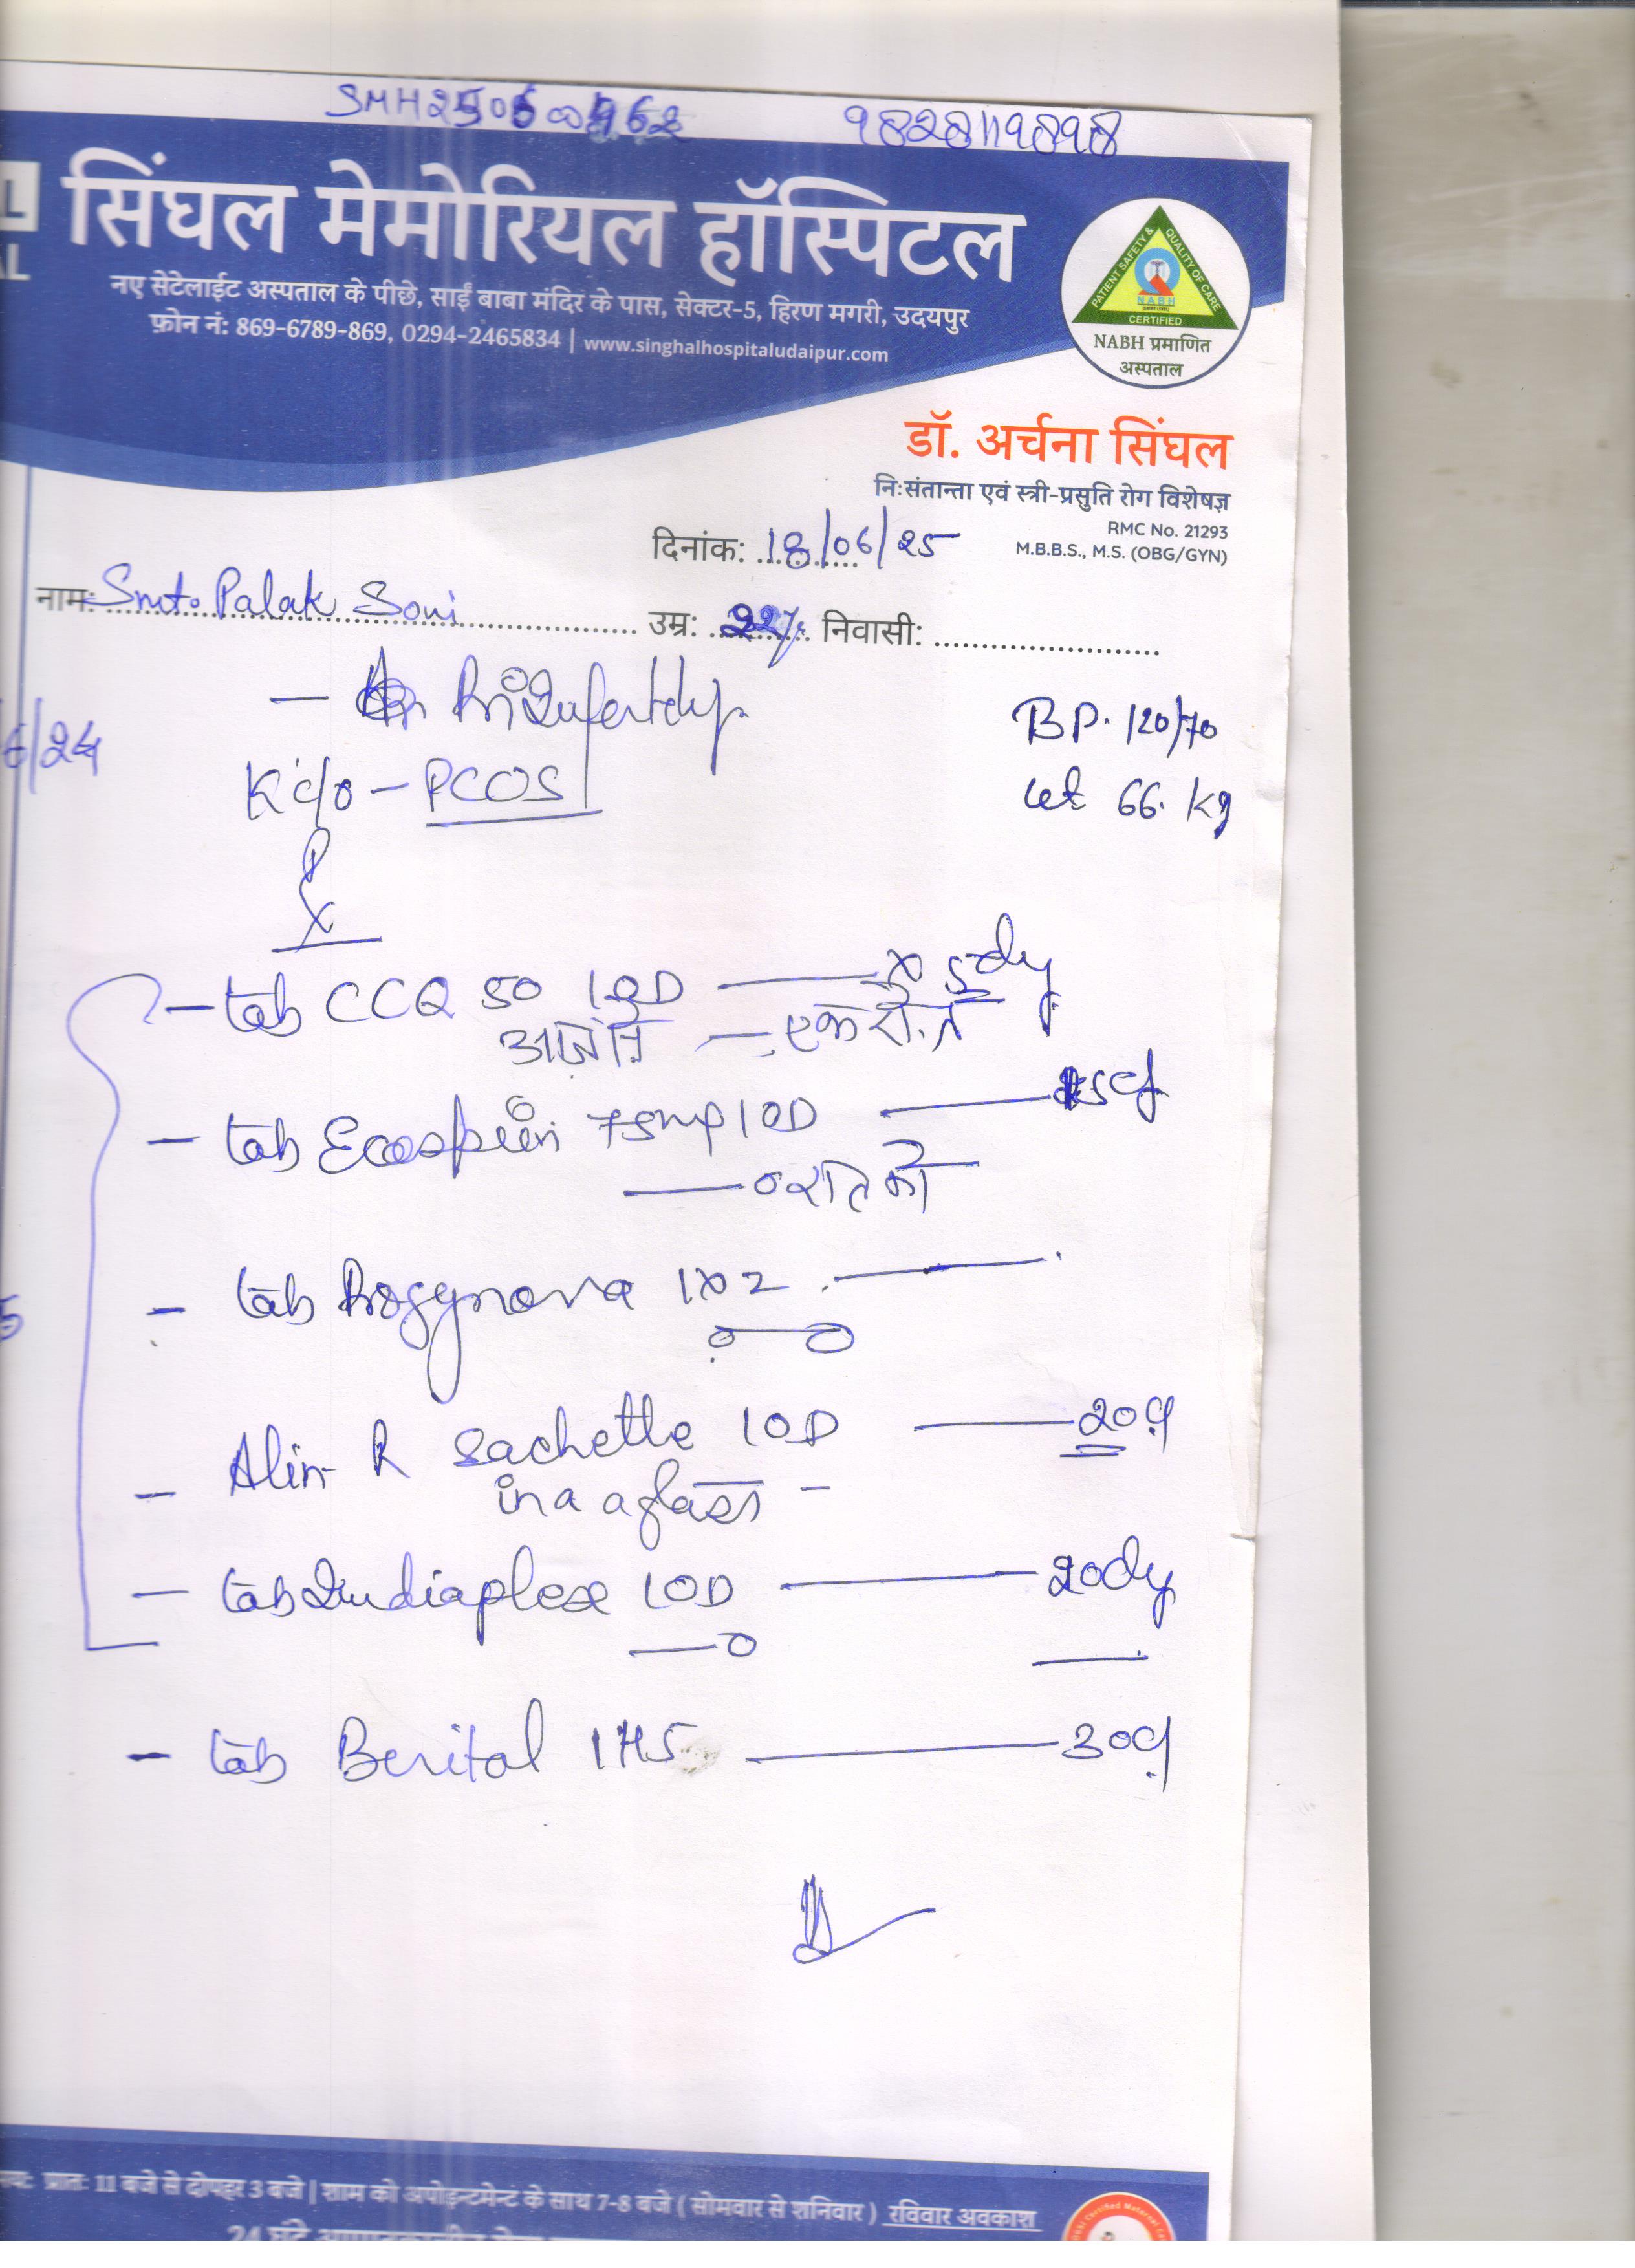 9828119898
L
AL
सिंघल मेमोरियल हॉस्पिटल
नए सेटेलाईट अस्पताल के पीछे, साईं बाबा मंदिर के पास, सेक्टर-5, हिरण मगरी, उदयपुर
फ़ोन नं: 869-6789-869, 0294-2465834 | www.singhalhospitaludaipur.com
PATIENT SAFETY & QUALITY OF CARE
NABH
CERTIFIED
NABH प्रमाणित
अस्पताल
डॉ. अर्चना सिंघल
निःसंतानता एवं स्त्री-प्रसुति रोग विशेषज्ञ
RMC No. 21293
M.B.B.S., M.S. (OBG/GYN)
दिनांक: 18/06/25
नाम: Smt. Palak Soni उम्र: 22 निवासी:
Infertility
BP. 120/70
6/24
K/c/o - PCOS
wt 66. kg
Rx
- tab CCQ 50 1OD — x 5 dy
— एक रोज
- tab Ecosprin 75mg 1OD
रात को
- tab Rosynova 1x2
- Alin-R sachette 1OD — 20
in a a glass -
- tab Indiaplex 1OD — 20dy
- tab Berital 1HS — 30
प्रातः 11 बजे से दोपहर 3 बजे | शाम को अपोइन्टमेन्ट के साथ 7-8 बजे ( सोमवार से शनिवार ) रविवार अवकाश